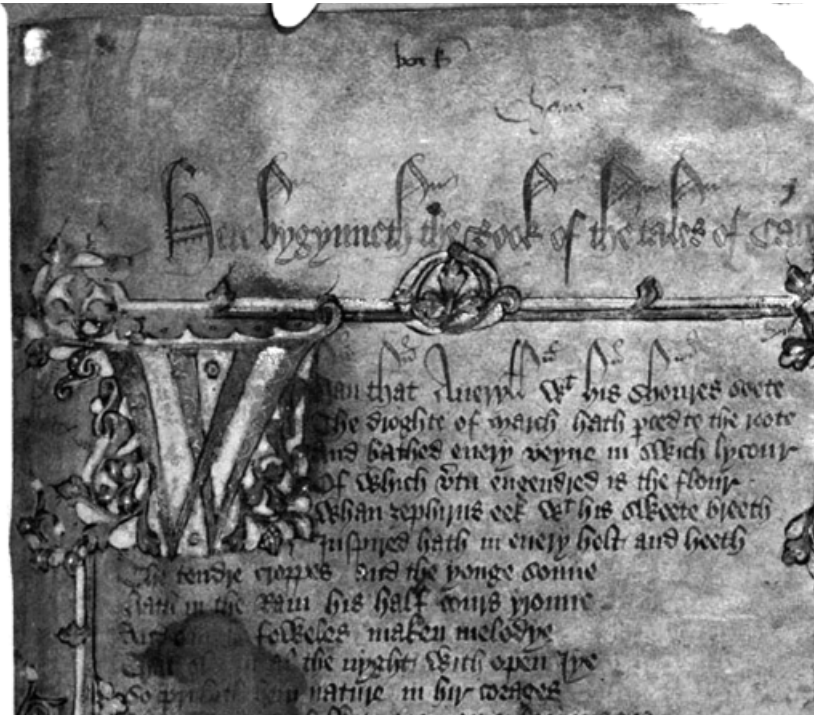 Here bygynneth the Book of the tales of Cau
Whan that Aueryll wt his shoures soote
The droghte of march hath pced to the roote
And bathed euery veyne in swich lycour
Of which vtu engendred is the flour
Whan zephirus eek wt his sweete breeth
Inspired hath in euery holt and heeth
The tendre croppes and the yonge sonne
Hath in the Ram his half cours yronne
And foweles maken melodye
That al the nyght with open Iye
So hem nature in hir corages